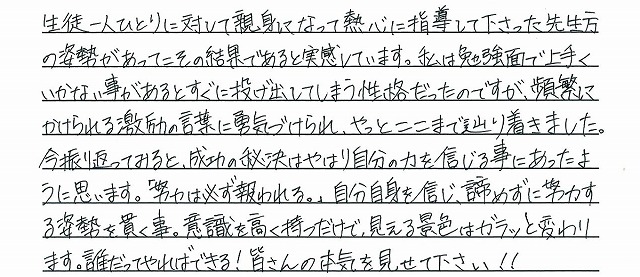 生徒一人ひとりに対して親身になって熱心に指導して下さった先生方
の姿勢があってこその結果であると実感しています。私は勉強面で上手く
いかない事があるとすぐに投げ出してしまう性格だったのですが、頻繁に
かけられる激励の言葉に勇気づけられ、やっとここまで辿り着きました。
今振り返ってみると、成功の秘決はやはり自分の力を信じる事にあったよ
うに思います。「努力は必ず報われる。」自分自身を信じ、諦めずに努力す
る姿勢を貫く事。意識を高く持つだけで、見える景色はガラッと変わり
ます。誰だってやればできる!皆さんの本気を見せて下さい!!